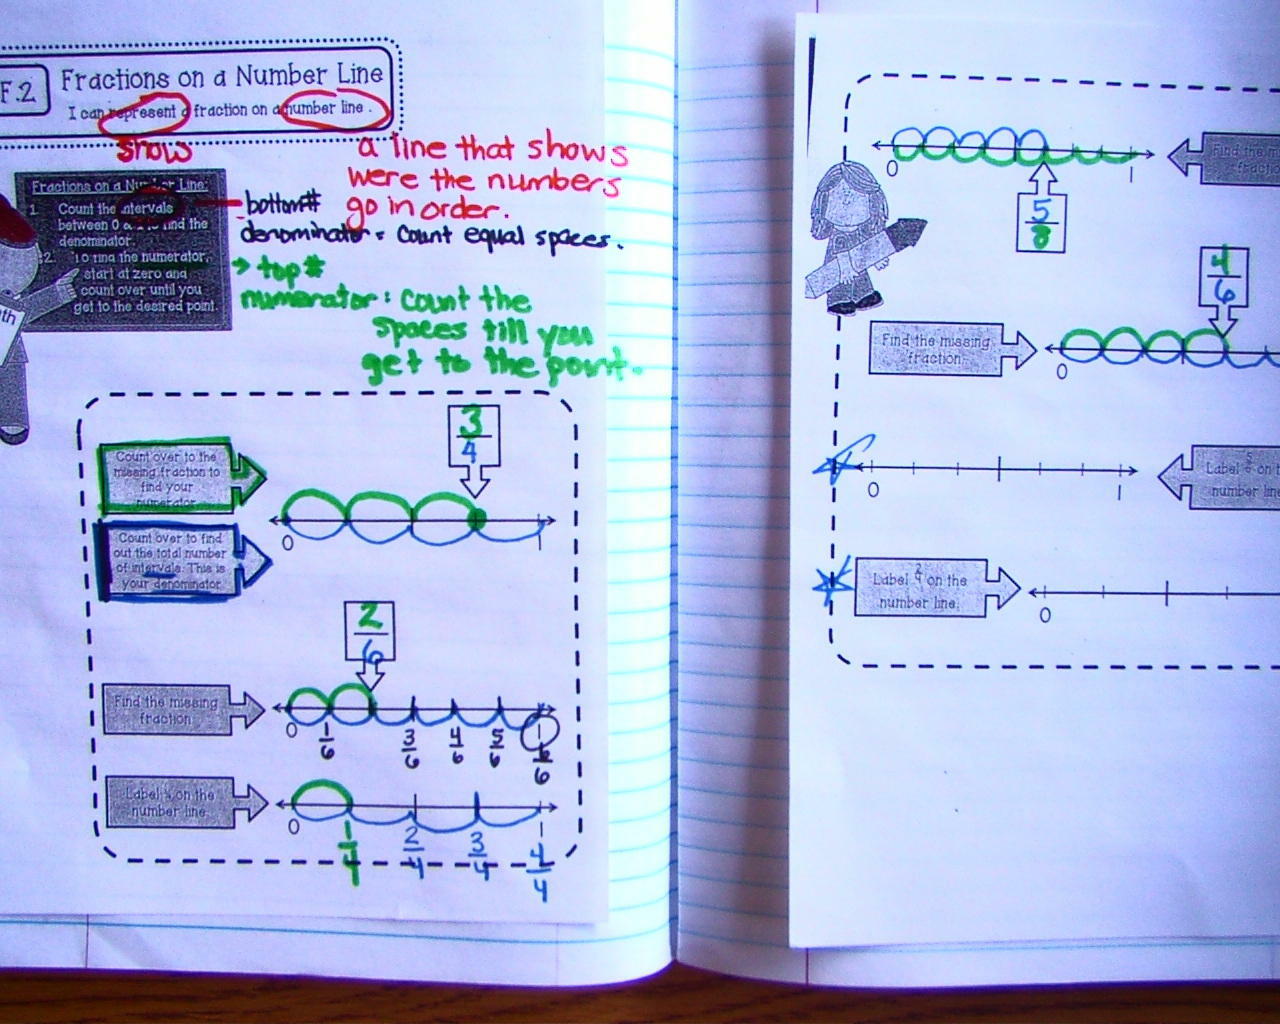 F.2
Fractions on a Number Line
I can represent a fraction on a number line.
show
a line that shows
were the numbers
go in order.
Fractions on a Number Line:
1. Count the intervals
between 0 & 1 to find the
denominator.
2. To find the numerator,
start at zero and
count over until you
get to the desired point.
bottom#
denominator = Count equal spaces.
→ top#
numerator: count the
spaces till you
get to the point.
Count over to the
missing fraction to
find your
numerator.
3
4
0 1
Count over to find
out the total number
of intervals. This is
your denominator.
2
6
Find the missing
fraction.
0 1/6 3/6 4/6 5/6 6/6
Label ¼ on the
number line.
0 1/4 2/4 3/4 4/4
0 1
5
8
Find the
4
6
Find the missing
fraction.
0
0 1
Label on
number line
Label on the
number line.
0